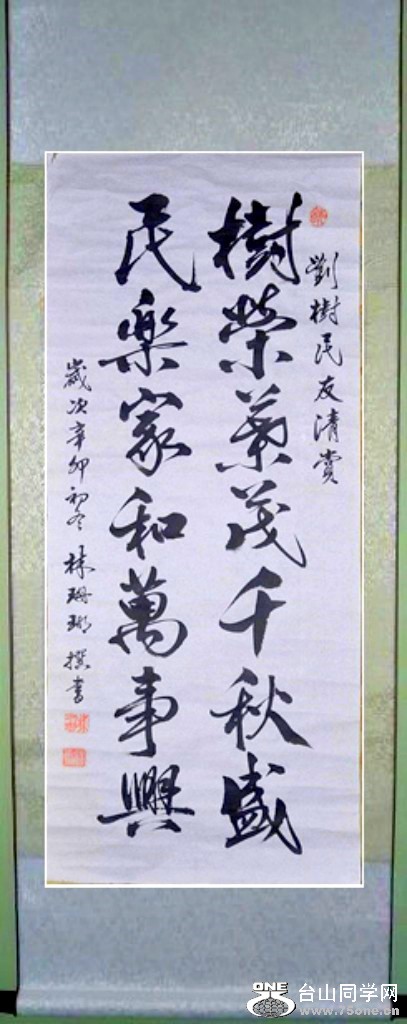 劉樹民友清賞
樹榮葉茂千秋盛
民樂家和萬事興
歲次辛卯初冬 林珊瑚 撰書
ONE
台山同学网
www.75one.cn